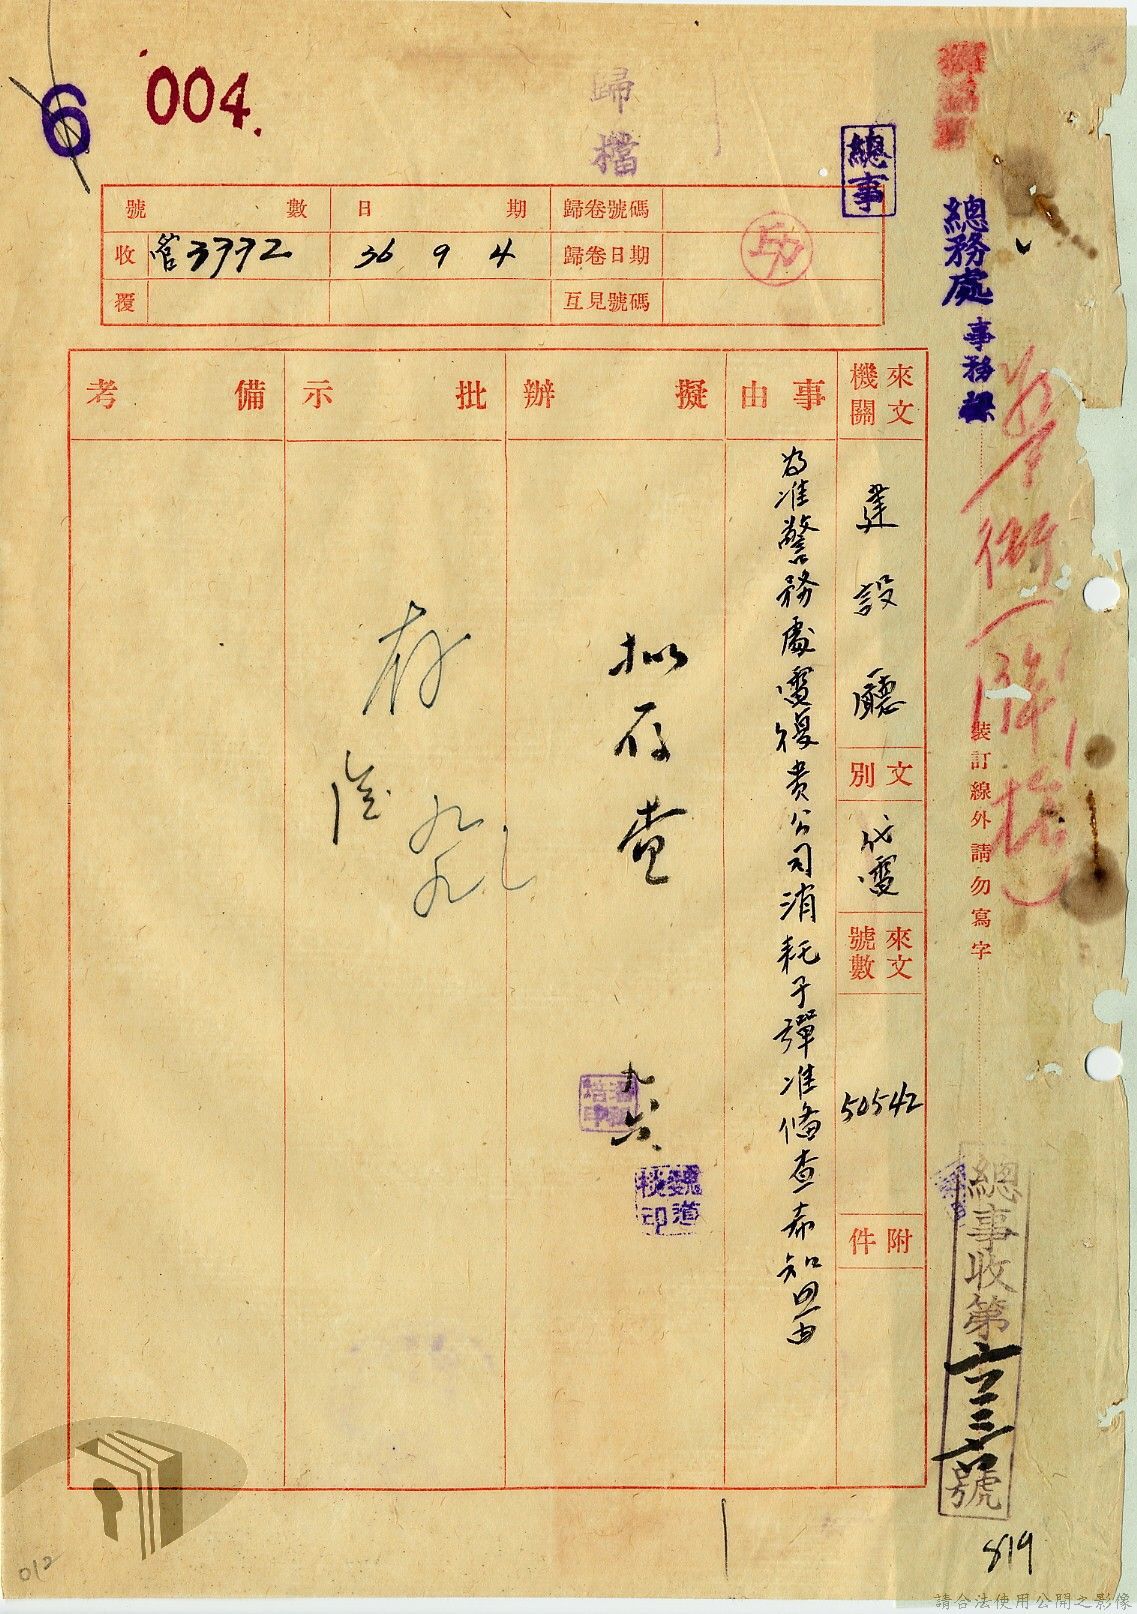 6
004.
歸檔
總事
總務處事務課
號數
日期
歸卷號碼
收
3772
36 9 4
歸卷日期
覆
互見號碼
來文機關
事由
擬辦
批示
備考
建設廳
文別
代電
來文號數
50542
附件
為准警務處電復貴公司消耗子彈准備查希知照由
擬存查
九六
魏道棪印
存
九
裝訂線外請勿寫字
總事收第
號
819
012
請合法使用公開之影像